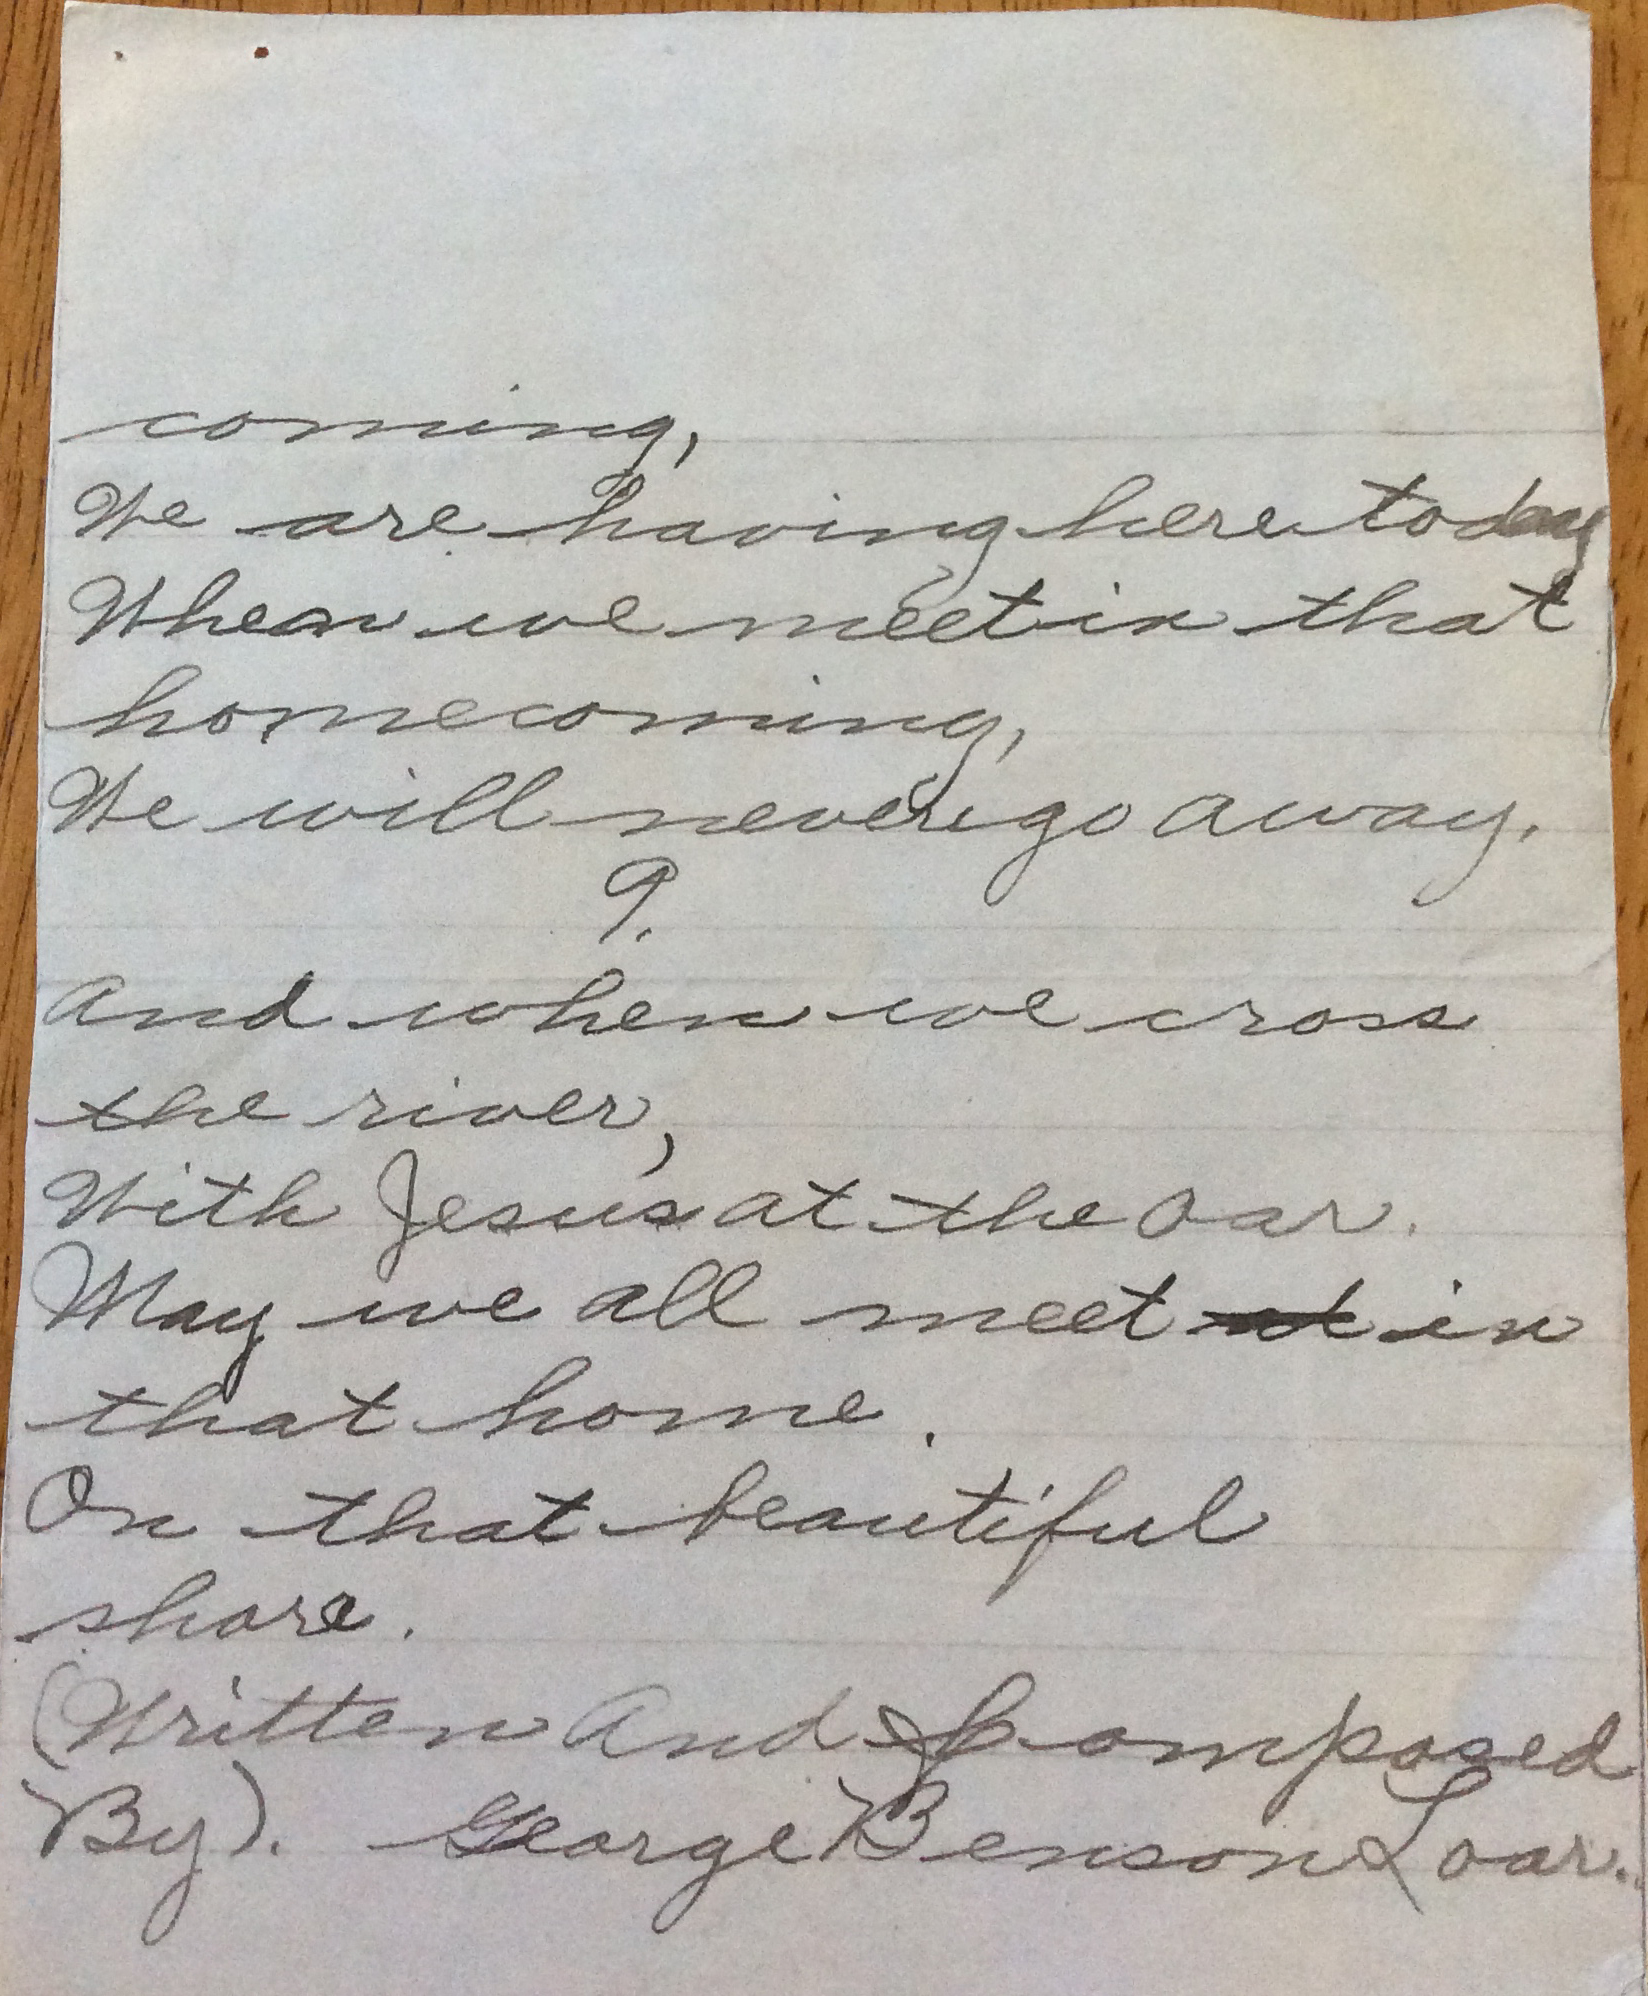 coming,
We are having here today
When we meet in that
homecoming,
We will never go away.
9.
And when we cross
the river,
With Jesus at the oar.
May we all meet in
that home.
On that beautiful
shore.
(Written And Composed
By). George Benson Loar.